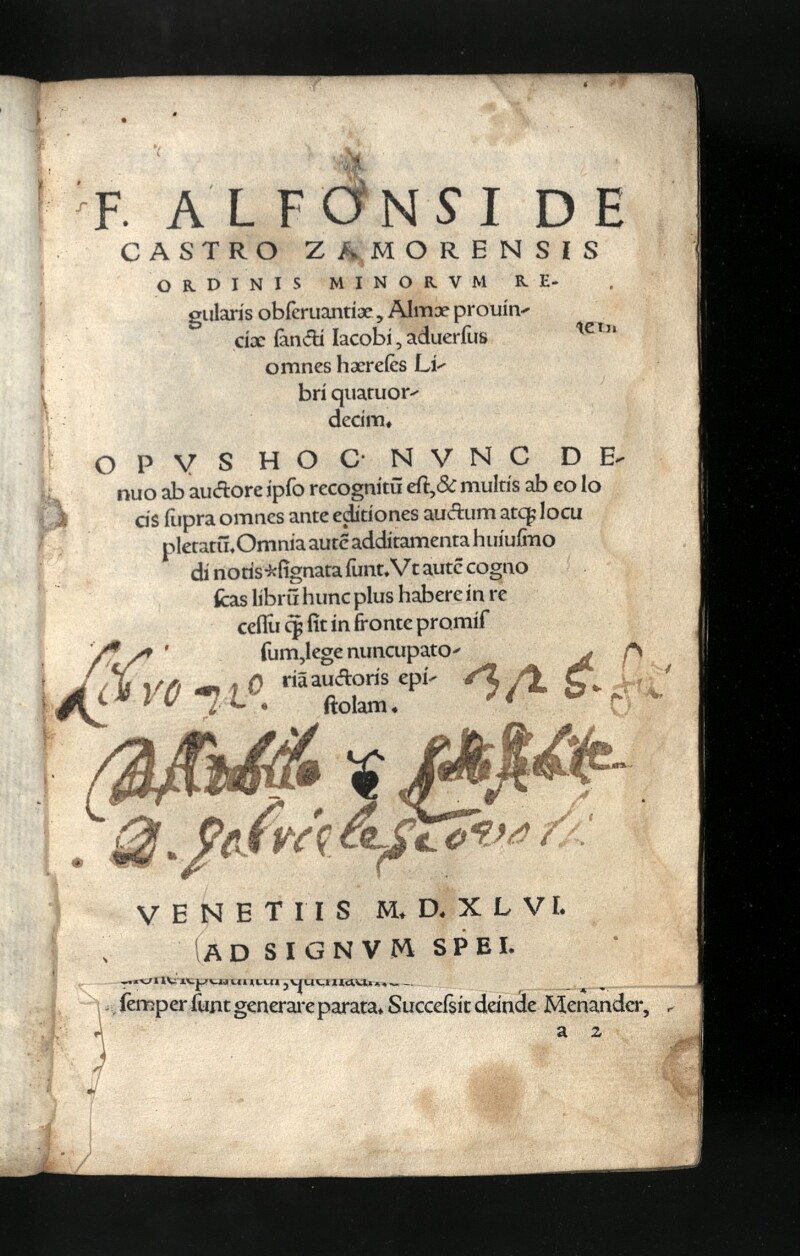 F. ALFONSI DE
CASTRO ZAMORENSIS
ORDINIS MINORVM RE-
gularis obſeruantiæ, Almæ prouin-
ciæ ſancti Iacobi, aduerſus
omnes hæreſes Li-
bri quatuor-
decim.
OPVS HOC NVNC DE-
nuo ab auctore ipſo recognitū eſt, & multis ab eo lo
cis ſupra omnes ante editiones auctum atq; locu
pletatū. Omnia autē additamenta huiuſmo
di notis * ſignata ſunt. Vt autē cogno
ſcas librū hunc plus habere in re
ceſſu q̄; ſit in fronte promiſ
ſum, lege nuncupato-
riā auctoris epi-
ſtolam.
Libro
D. gabriele
VENETIIS M. D. XLVI.
AD SIGNVM SPEI.
ſemper ſunt generare parata. Succeſsit deinde Menander,
a 2